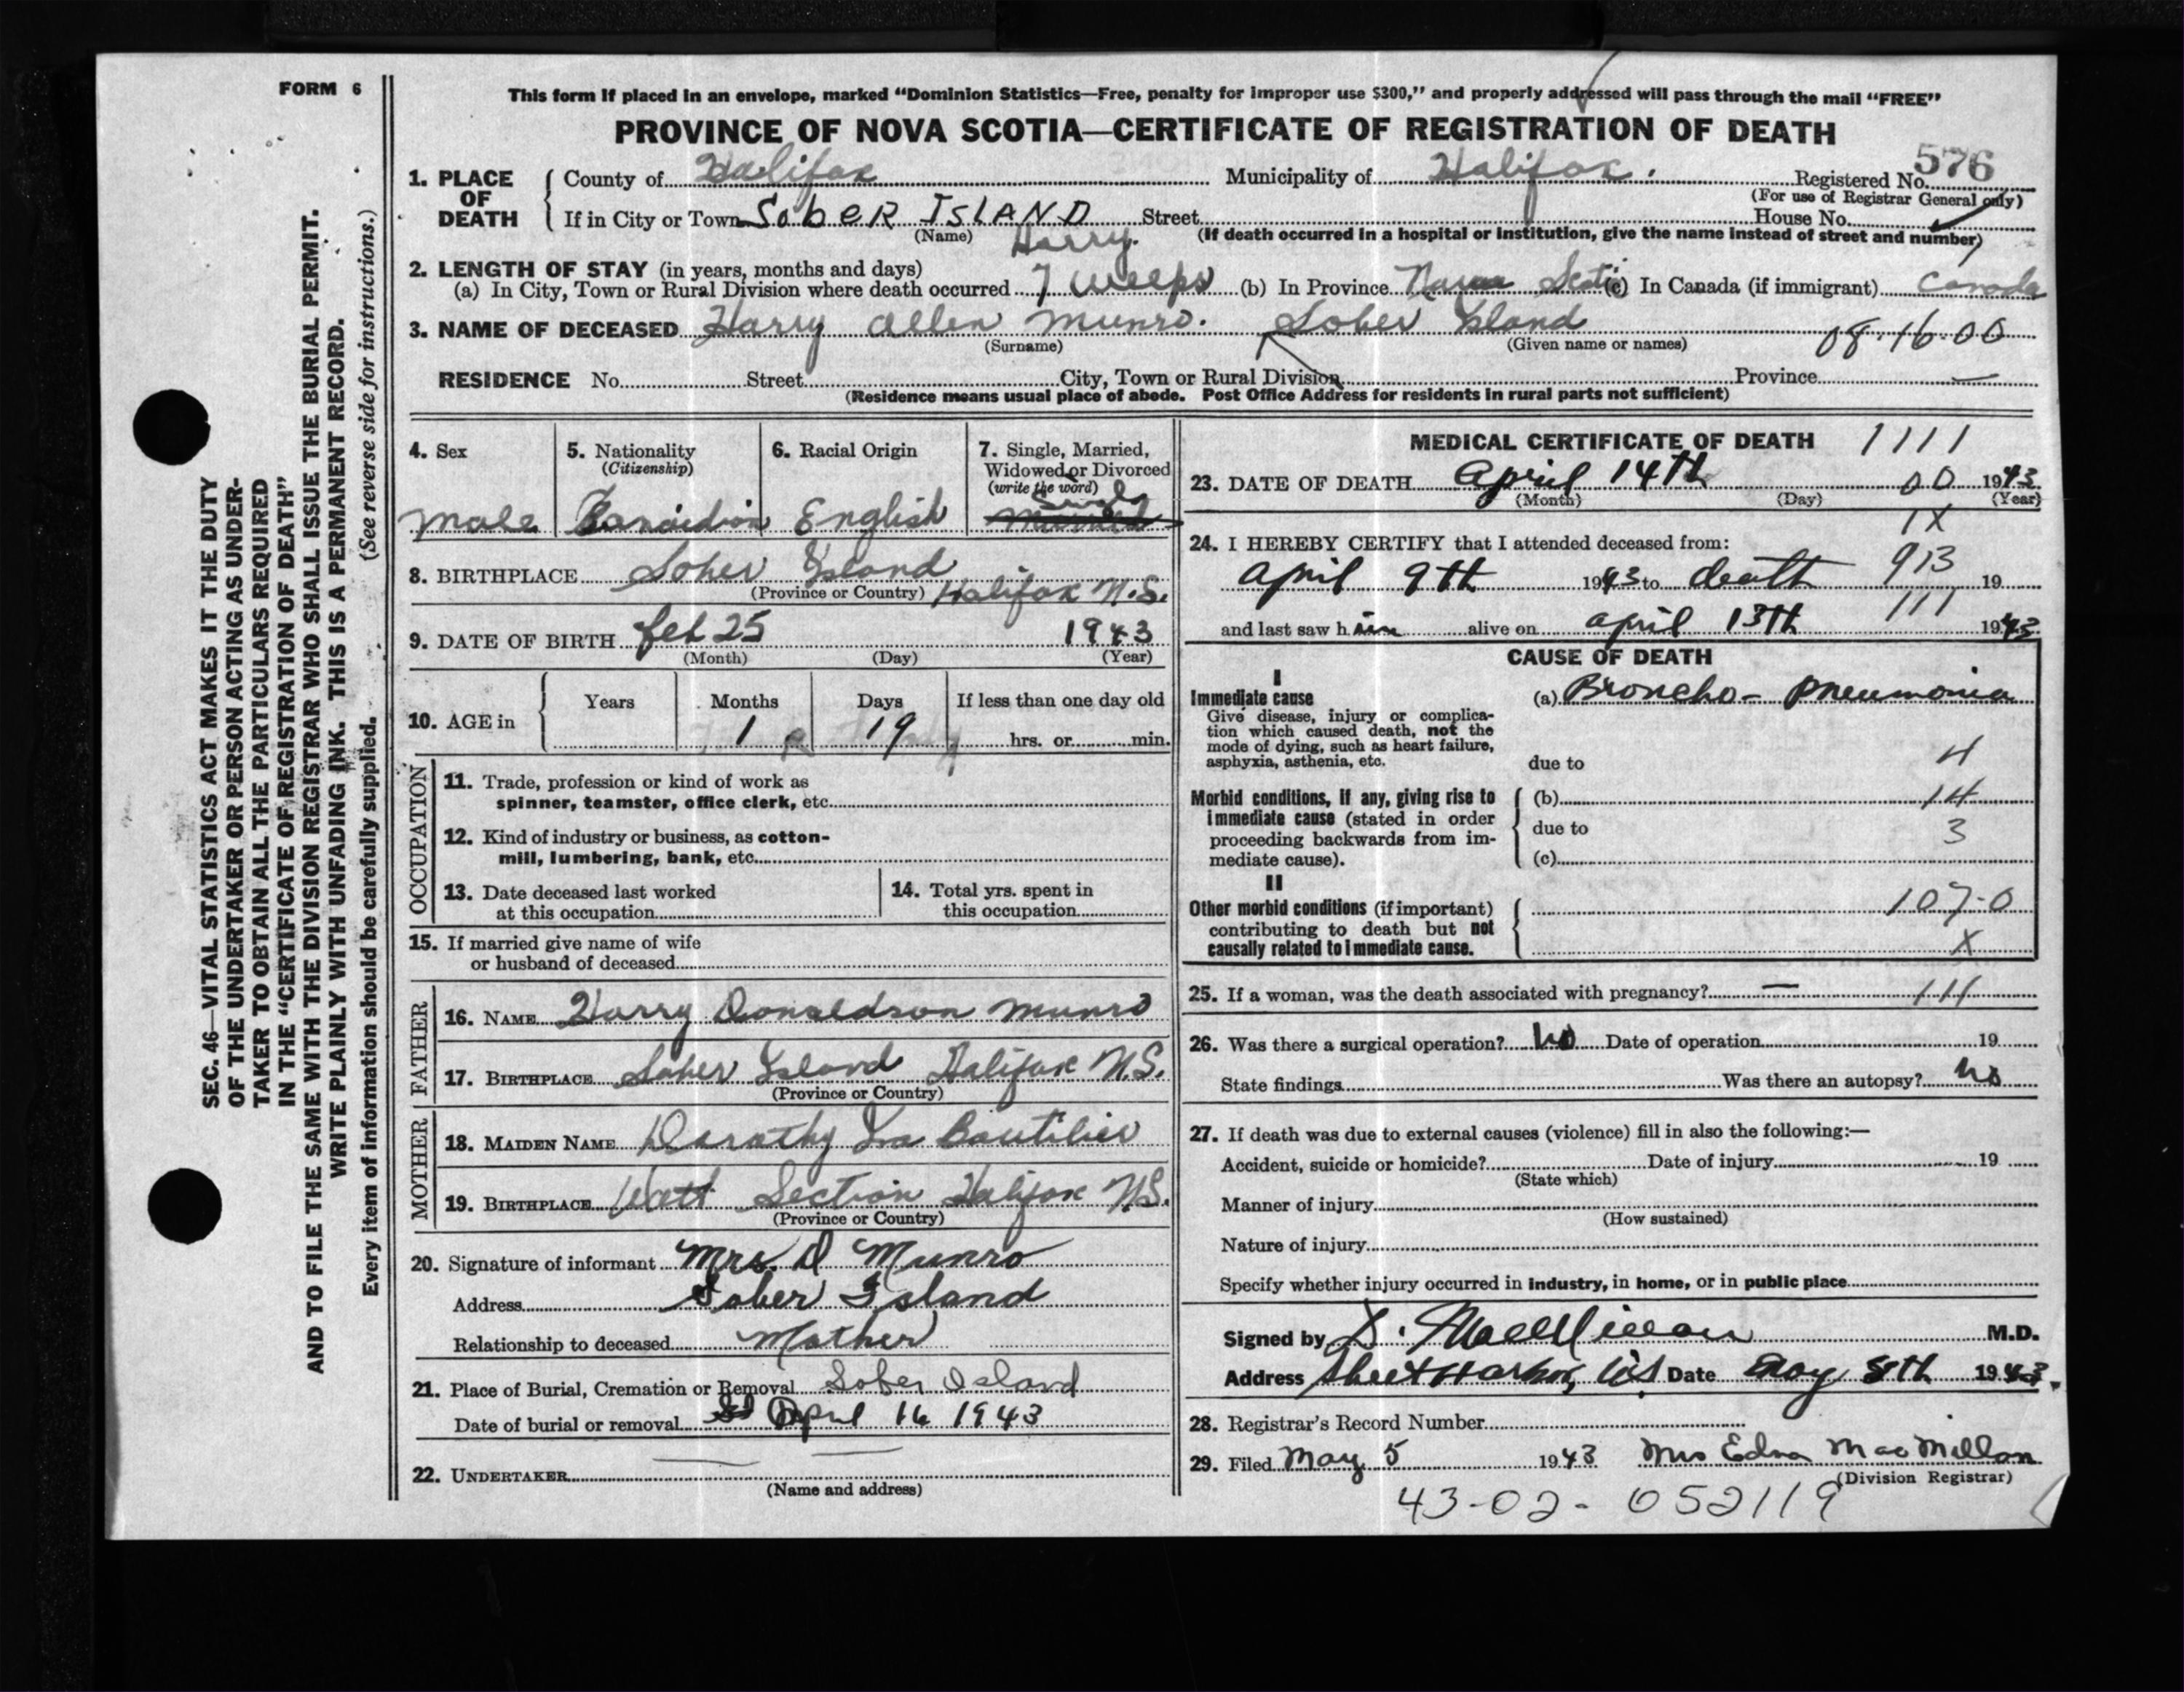 FORM 6
This form if placed in an envelope, marked "Dominion Statistics—Free, penalty for improper use $300," and properly addressed will pass through the mail "FREE"
PROVINCE OF NOVA SCOTIA—CERTIFICATE OF REGISTRATION OF DEATH
576
1. PLACE OF DEATH
County of Halifax Municipality of Halifax. Registered No.
(For use of Registrar General only)
If in City or Town Sober Island Street House No.
(Name) (If death occurred in a hospital or institution, give the name instead of street and number)
Harry.
2. LENGTH OF STAY (in years, months and days)
(a) In City, Town or Rural Division where death occurred 7 weeks (b) In Province Nova Scotia (c) In Canada (if immigrant) Canada
3. NAME OF DECEASED Harry Allen Munro. Sober Island 08-16-00
(Surname) (Given name or names)
RESIDENCE No. Street City, Town or Rural Division Province —
(Residence means usual place of abode. Post Office Address for residents in rural parts not sufficient)
SEC. 46—VITAL STATISTICS ACT MAKES IT THE DUTY
OF THE UNDERTAKER OR PERSON ACTING AS UNDER-
TAKER TO OBTAIN ALL THE PARTICULARS REQUIRED
IN THE "CERTIFICATE OF REGISTRATION OF DEATH"
AND TO FILE THE SAME WITH THE DIVISION REGISTRAR WHO SHALL ISSUE THE BURIAL PERMIT.
WRITE PLAINLY WITH UNFADING INK. THIS IS A PERMANENT RECORD.
Every item of information should be carefully supplied. (See reverse side for instructions.)
4. Sex
male
5. Nationality
(Citizenship)
Canadian
6. Racial Origin
English
7. Single, Married,
Widowed or Divorced
(write the word)
Single
8. BIRTHPLACE Sober Island
(Province or Country) Halifax N.S.
9. DATE OF BIRTH Feb 25 1943
(Month) (Day) (Year)
10. AGE in
Years Months Days If less than one day old
1 19 hrs. or min.
OCCUPATION
11. Trade, profession or kind of work as
spinner, teamster, office clerk, etc.
12. Kind of industry or business, as cotton-
mill, lumbering, bank, etc.
13. Date deceased last worked
at this occupation
14. Total yrs. spent in
this occupation
15. If married give name of wife
or husband of deceased
FATHER
16. NAME Harry Donaldson Munro
17. BIRTHPLACE Sober Island Halifax N.S.
(Province or Country)
MOTHER
18. MAIDEN NAME Dorothy Iva Boutilier
19. BIRTHPLACE Watt Section Halifax N.S.
(Province or Country)
20. Signature of informant Mrs. D Munro
Address Sober Island
Relationship to deceased Mother
21. Place of Burial, Cremation or Removal Sober Island
Date of burial or removal April 16 1943
22. UNDERTAKER
(Name and address)
MEDICAL CERTIFICATE OF DEATH 1111
23. DATE OF DEATH April 14th 00 1943
(Month) (Day) (Year)
1X
24. I HEREBY CERTIFY that I attended deceased from:
April 9th 1943 to death 913 19
111
and last saw h im alive on April 13th 1943
CAUSE OF DEATH
I
Immediate cause (a) Broncho-pneumonia
Give disease, injury or complica-
tion which caused death, not the
mode of dying, such as heart failure,
asphyxia, asthenia, etc.
due to 4
Morbid conditions, if any, giving rise to
immediate cause (stated in order
proceeding backwards from im-
mediate cause).
(b) 14
due to 3
(c)
II
Other morbid conditions (if important)
contributing to death but not
causally related to immediate cause.
107-0
X
25. If a woman, was the death associated with pregnancy? — 111
26. Was there a surgical operation? No Date of operation 19
State findings Was there an autopsy? No
27. If death was due to external causes (violence) fill in also the following:—
Accident, suicide or homicide? Date of injury 19
(State which)
Manner of injury
(How sustained)
Nature of injury
Specify whether injury occurred in industry, in home, or in public place
Signed by D. MacMillan M.D.
Address Sheet Harbor, N.S Date May 8th 1943.
28. Registrar's Record Number
29. Filed May 5 1943 Mrs Edna MacMillan
(Division Registrar)
43-02-052119